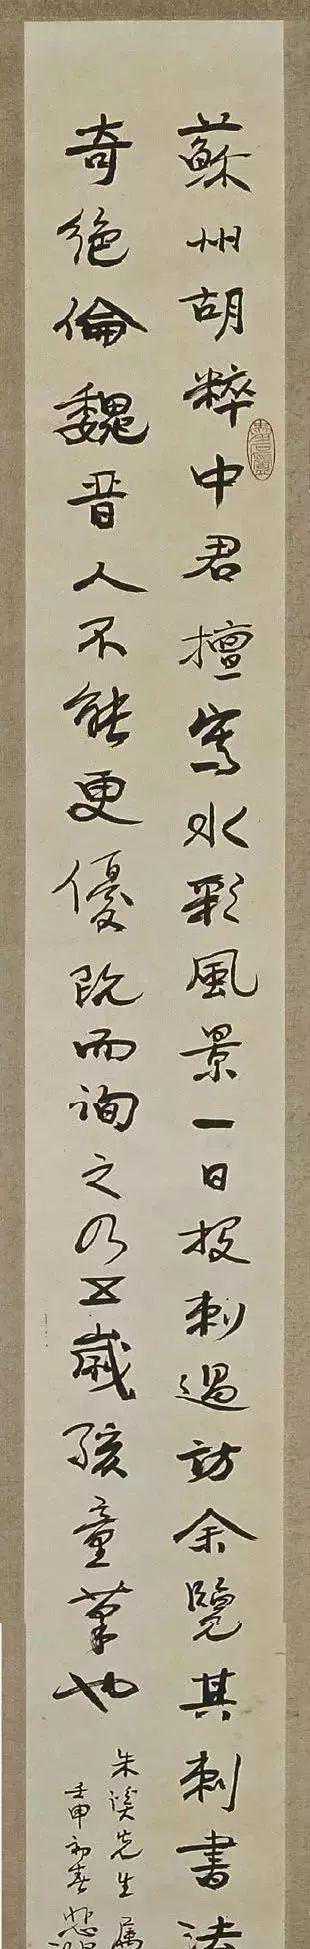 蘇州胡粹中君擅寫水彩風景一日投刺過訪余覽其刺書法
奇絶倫魏晉人不能更優既而詢之乃五歲孩童筆也
朱溪先生屬
壬申初春悲